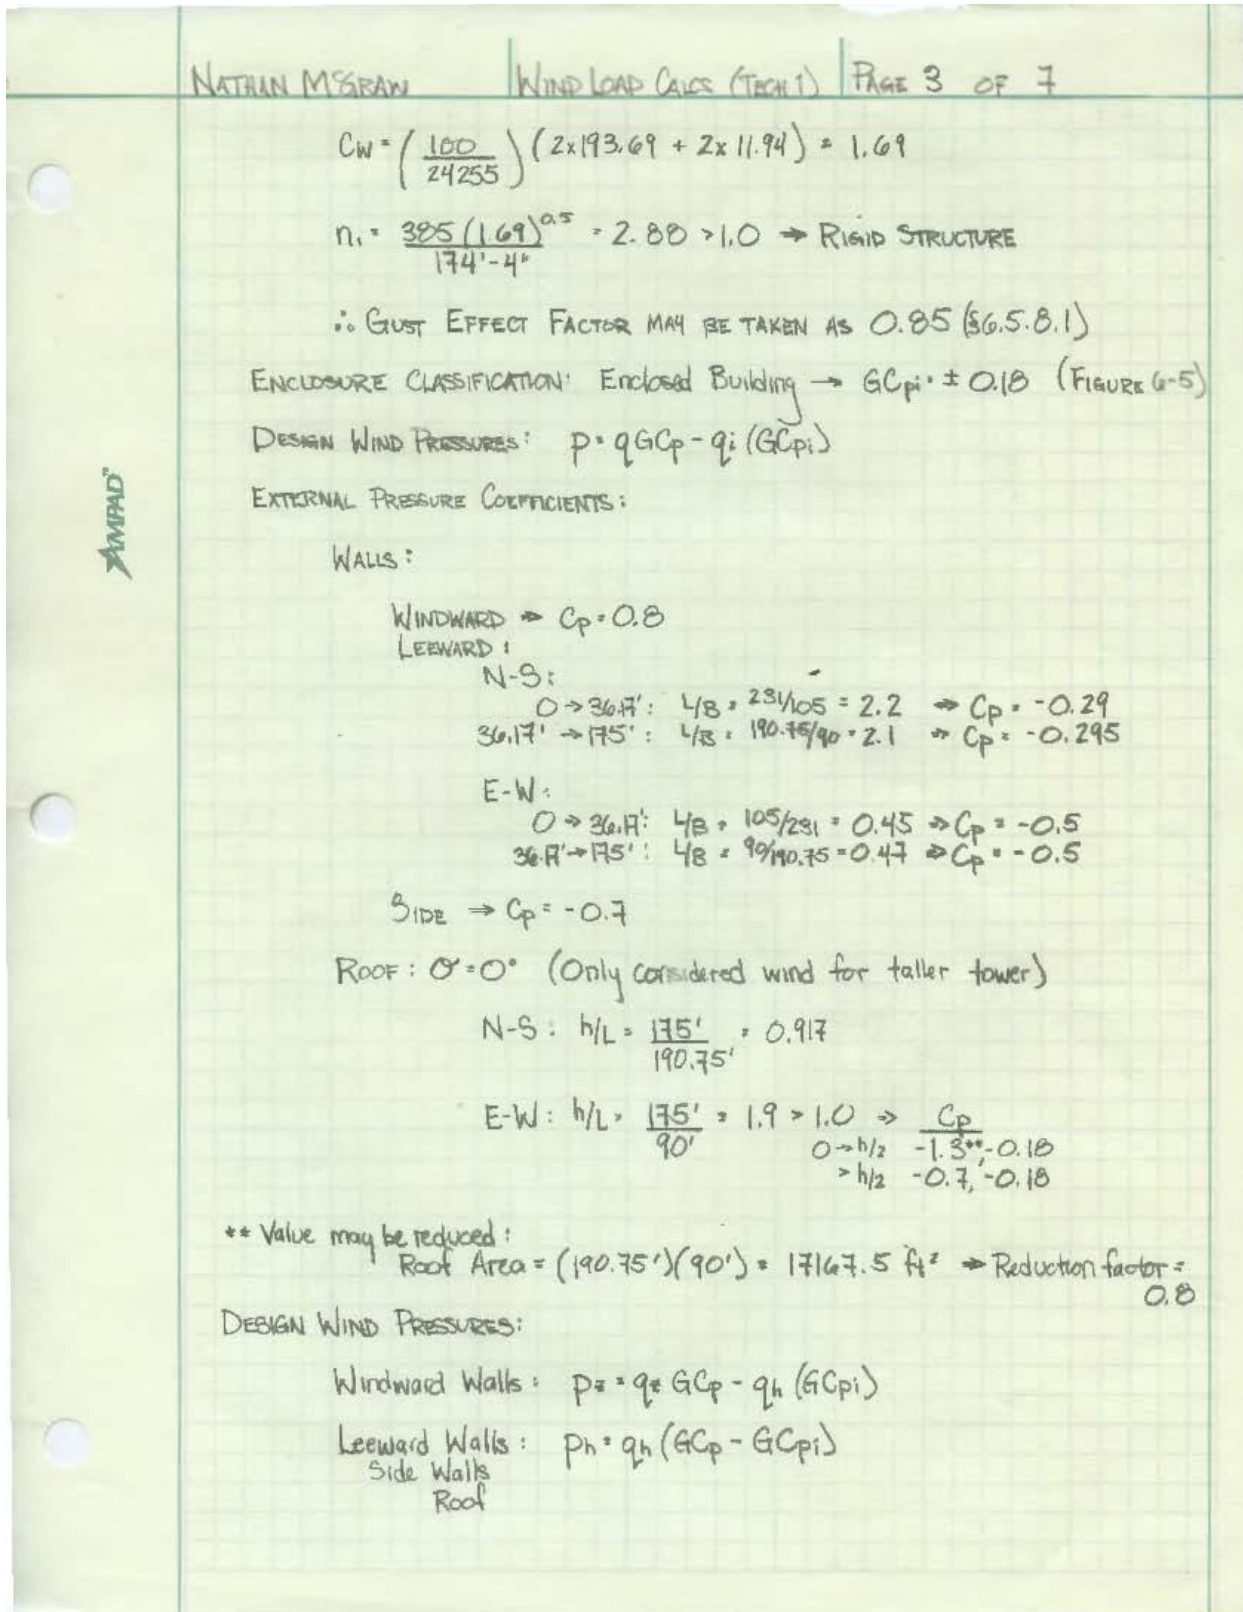 NATHAN McGRAW WIND LOAD CALCS (TECH 1) PAGE 3 OF 7
Cw = (100/24255)(2x193.69 + 2x11.94) = 1.69
n₁ = 385(1.69)^0.5/174'-4" = 2.88 > 1.0 → RIGID STRUCTURE
∴ GUST EFFECT FACTOR MAY BE TAKEN AS 0.85 (§6.5.8.1)
ENCLOSURE CLASSIFICATION: Enclosed Building → GCpi = ± 0.18 (FIGURE 6-5)
DESIGN WIND PRESSURES: p = qGCp - qi (GCpi)
AMPAD™
EXTERNAL PRESSURE COEFFICIENTS:
WALLS:
WINDWARD → Cp = 0.8
LEEWARD:
N-S:
0 → 36.17': L/B = 231/105 = 2.2 ⇒ Cp = -0.29
36.17' → 175': L/B = 190.75/90 = 2.1 ⇒ Cp = -0.295
E-W:
0 → 36.17': L/B = 105/231 = 0.45 ⇒ Cp = -0.5
36.17' → 175': L/B = 90/190.75 = 0.47 ⇒ Cp = -0.5
SIDE ⇒ Cp = -0.7
ROOF: θ = 0° (Only considered wind for taller tower)
N-S: h/L = 175'/190.75' = 0.917
E-W: h/L = 175'/90' = 1.9 > 1.0 ⇒ Cp
0→h/2 -1.3**, -0.18
>h/2 -0.7, -0.18
** Value may be reduced:
Roof Area = (190.75')(90') = 17167.5 ft² ⇒ Reduction factor =
0.8
DESIGN WIND PRESSURES:
Windward Walls: pz = qz GCp - qh (GCpi)
Leeward Walls: ph = qh (GCp - GCpi)
Side Walls
Roof